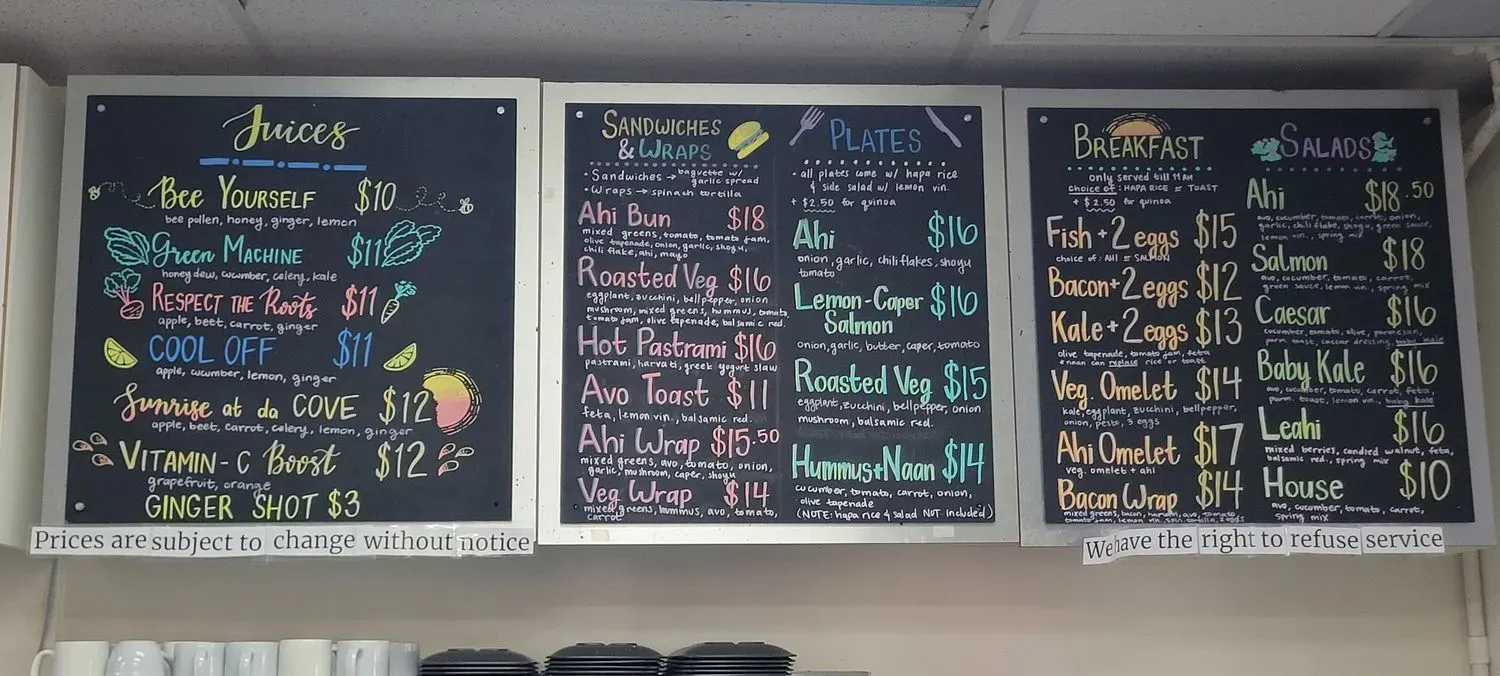 Juices
Bee Yourself $10
bee pollen, honey, ginger, lemon
Green Machine $11
honeydew, cucumber, celery, kale
Respect the Roots $11
apple, beet, carrot, ginger
COOL OFF $11
apple, cucumber, lemon, ginger
Sunrise at da COVE $12
apple, beet, carrot, celery, lemon, ginger
VITAMIN-C Boost $12
grapefruit, orange
GINGER SHOT $3
Prices are subject to change without notice
SANDWICHES
& WRAPS
• Sandwiches → baguette w/
garlic spread
• Wraps → spinach tortilla
Ahi Bun $18
mixed greens, tomato, tomato jam,
olive tapenade, onion, garlic, shoyu,
chili flake, ahi, mayo
Roasted Veg $16
eggplant, zucchini, bell pepper, onion
mushroom, mixed greens, hummus, tomato,
tomato jam, olive tapenade, balsamic red.
Hot Pastrami $16
pastrami, harvati, greek yogurt slaw
Avo Toast $11
feta, lemon vin., balsamic red.
Ahi Wrap $15.50
mixed greens, avo, tomato, onion,
garlic, mushroom, caper, shoyu
Veg Wrap $14
mixed greens, hummus, avo, tomato,
carrot
PLATES
• all plates come w/ hapa rice
& side salad w/ lemon vin.
+ $2.50 for quinoa
Ahi $16
onion, garlic, chili flakes, shoyu
tomato
Lemon-Caper $16
Salmon
onion, garlic, butter, caper, tomato
Roasted Veg $15
eggplant, zucchini, bell pepper, onion
mushroom, balsamic red.
Hummus+Naan $14
cucumber, tomato, carrot, onion,
olive tapenade
(NOTE: hapa rice & salad NOT included)
BREAKFAST
only served till 11AM
choice of: HAPA RICE or TOAST
+ $2.50 for quinoa
Fish + 2 eggs $15
choice of: AHI or SALMON
Bacon + 2 eggs $12
Kale + 2 eggs $13
olive tapenade, tomato jam, feta
*naan can replace rice or toast
Veg. Omelet $14
kale, eggplant, zucchini, bellpepper,
onion, pesto, 3 eggs
Ahi Omelet $17
veg. omelet + ahi
Bacon Wrap $14
mixed greens, bacon, harvati, avo, tomato
tomato jam, lemon vin., spin. tortilla, 2 eggs
SALADS
Ahi $18.50
avo, cucumber, tomato, carrot, onion,
garlic, chili flake, shoyu, green sauce,
lemon vin., spring mix
Salmon $18
avo, cucumber, tomato, carrot,
green sauce, lemon vin., spring mix
Caesar $16
cucumber, tomato, olive, parmesan,
parm. toast, caesar dressing, baby kale
Baby Kale $16
avo, cucumber, tomato, carrot, feta,
parm. toast, lemon vin., baby kale
Leahi $16
mixed berries, candied walnut, feta,
balsamic red., spring mix
House $10
avo, cucumber, tomato, carrot,
spring mix
We have the right to refuse service